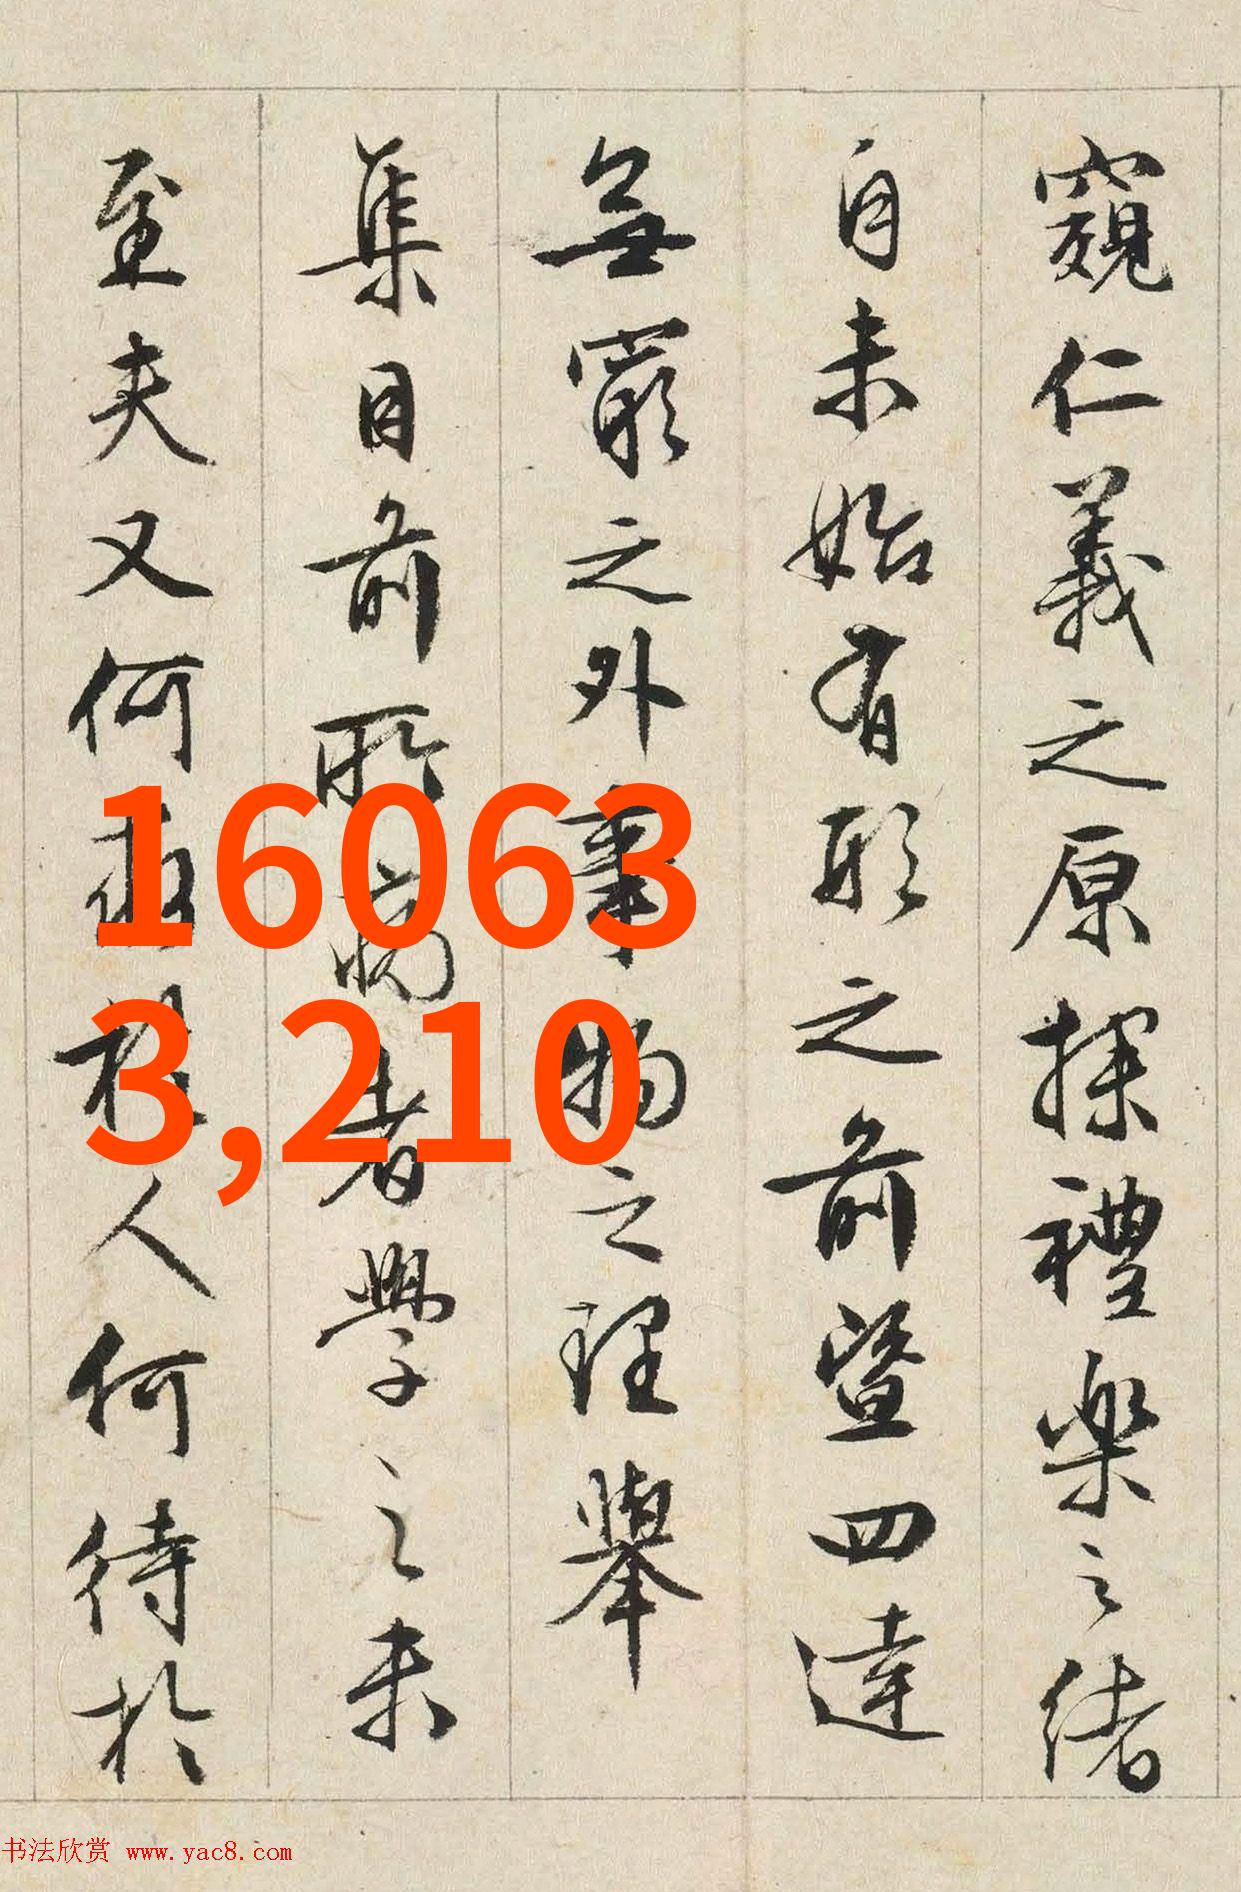 窺仁義之原探禮樂之緒
自未始有形之前暨四達
無窮之外事物之理舉
集目前所病者學之未
至夫又何人何待於
16063
3,210
书法欣赏 www.yac8.com